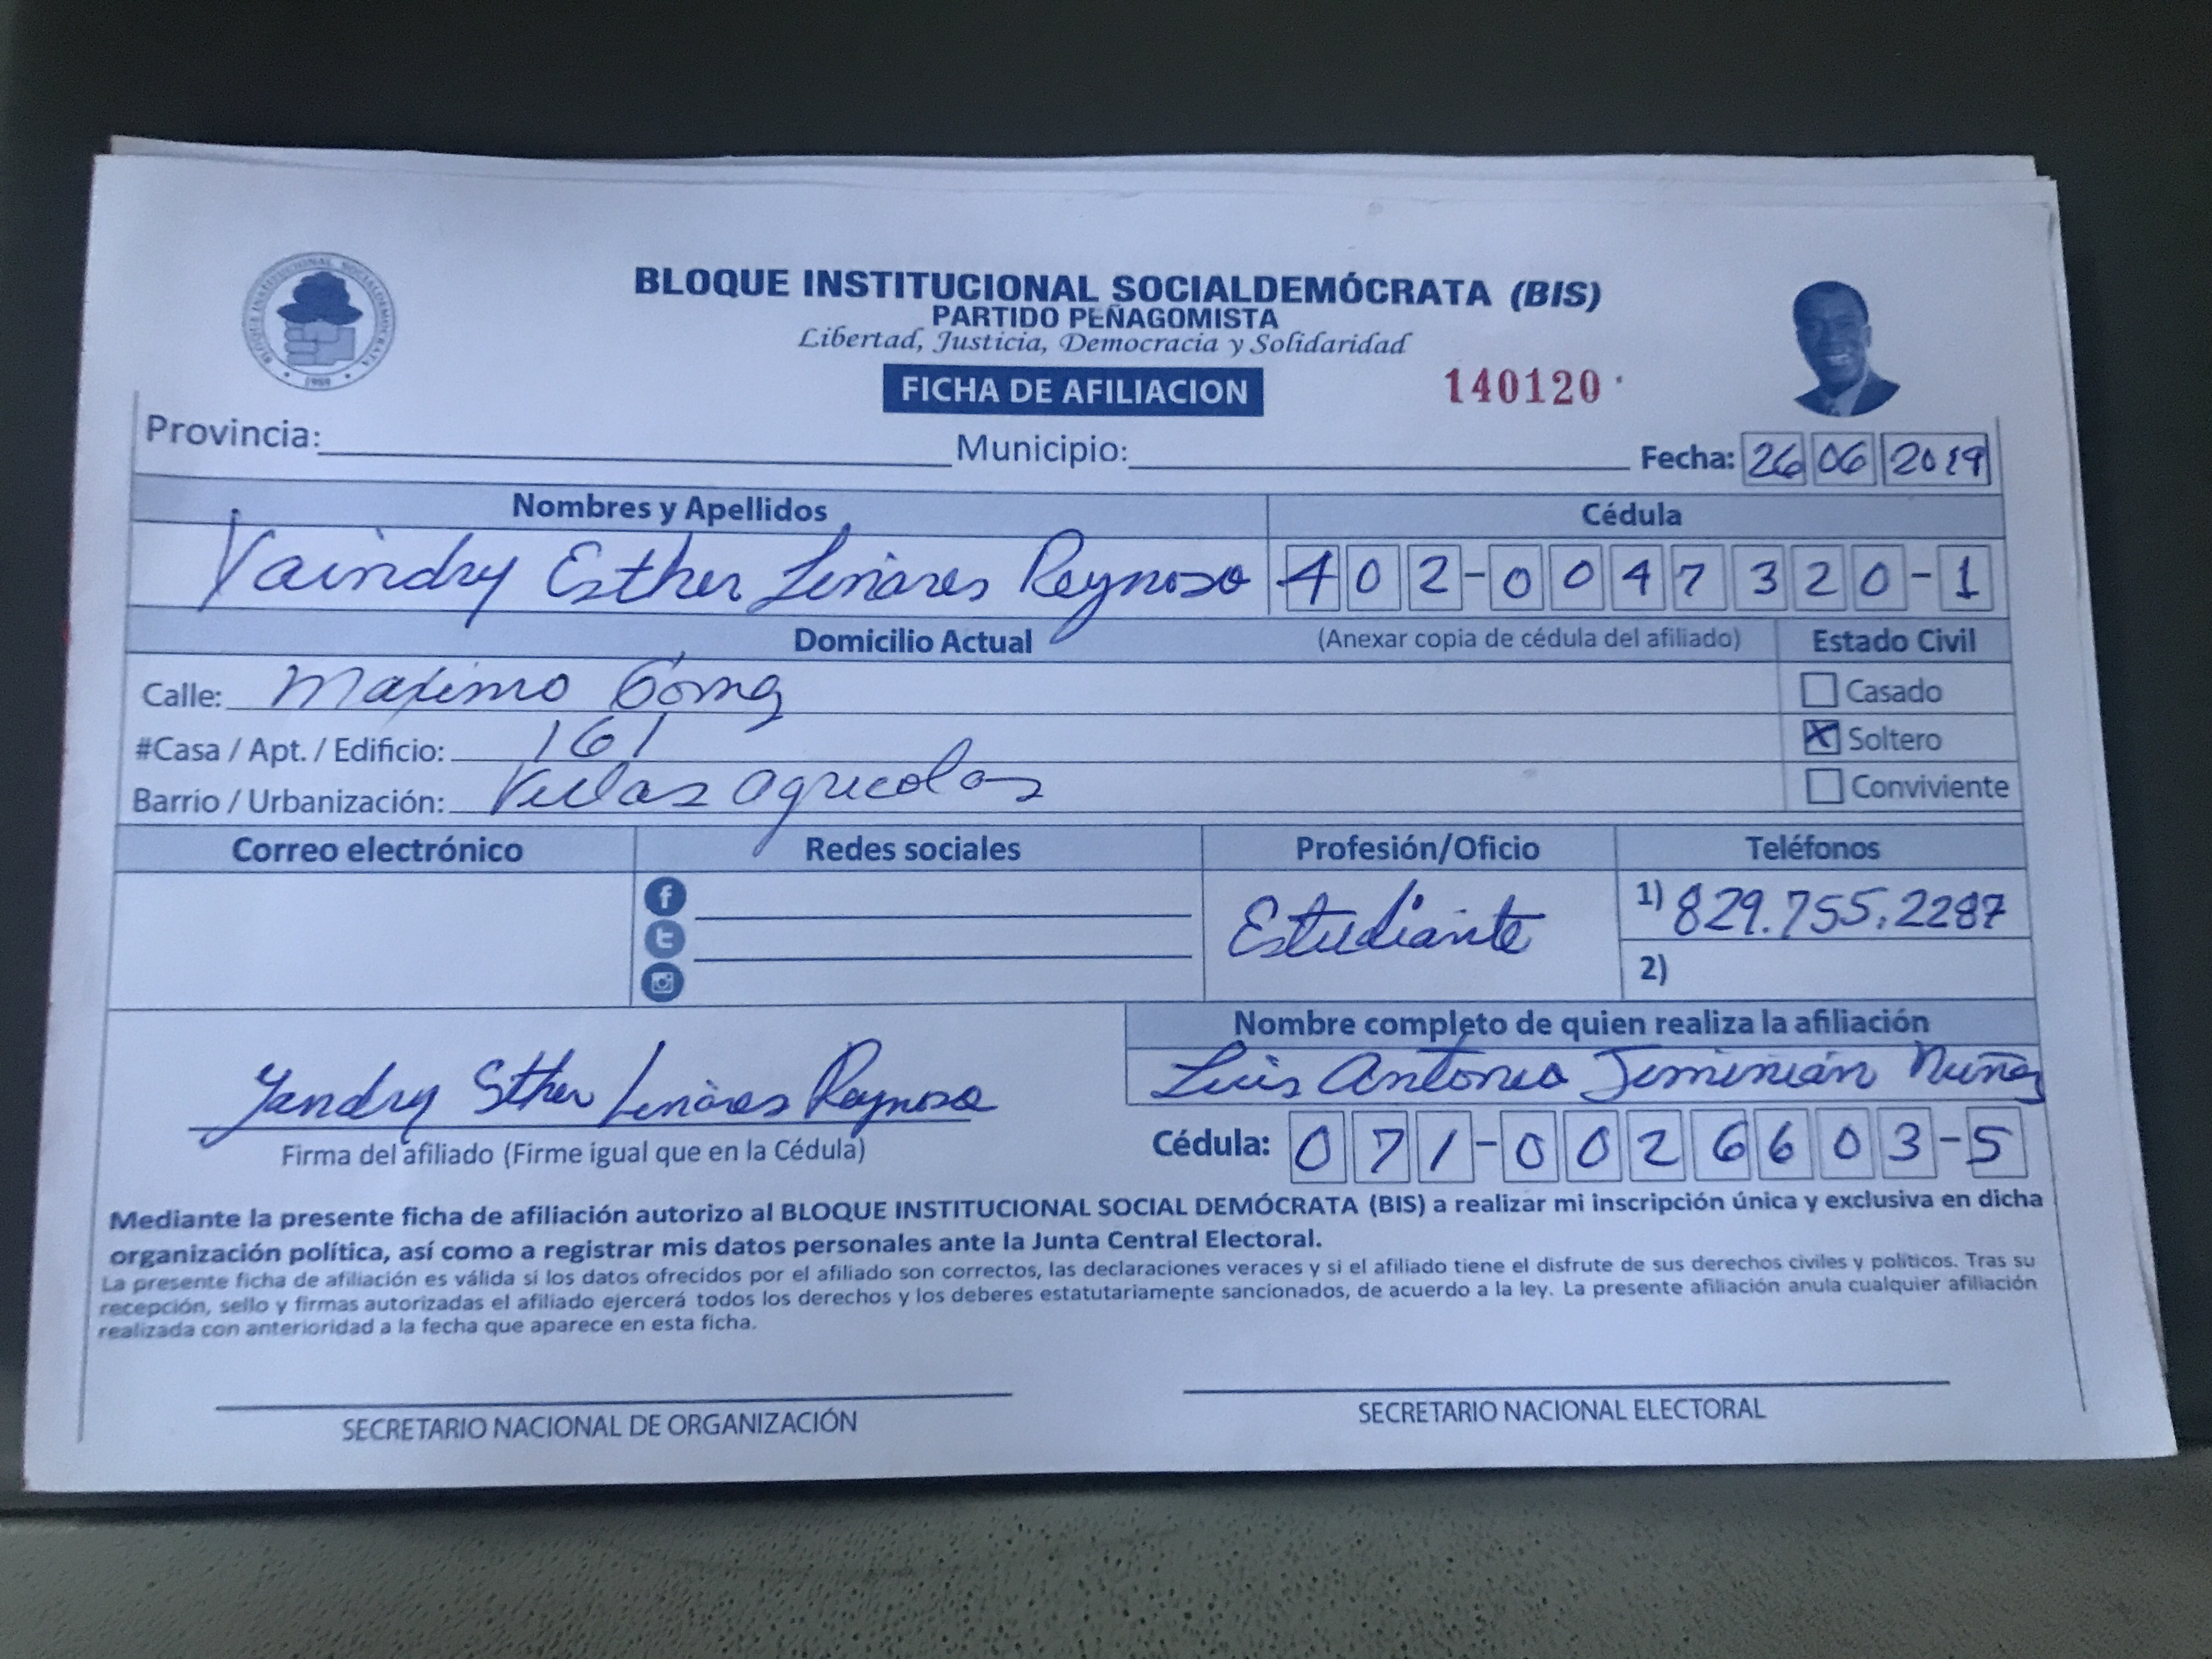 BLOQUE INSTITUCIONAL SOCIALDEMOCRATA
1989
BLOQUE INSTITUCIONAL SOCIALDEMÓCRATA (BIS)
PARTIDO PEÑAGOMISTA
Libertad, Justicia, Democracia y Solidaridad
FICHA DE AFILIACION 140120
Provincia: Municipio: Fecha: 26 06 2019
Nombres y Apellidos Cédula
Yaindry Esther Linares Reynoso 402-0047320-1
Domicilio Actual (Anexar copia de cédula del afiliado) Estado Civil
Calle: Maximo Gómez Casado
#Casa / Apt. / Edificio: 161 X Soltero
Barrio / Urbanización: Villas agricolas Conviviente
Correo electrónico Redes sociales Profesión/Oficio Teléfonos
Estudiante 1) 829.755.2287
2)
Nombre completo de quien realiza la afiliación
Luis Antonio Jiminián Nuñez
Yandry Sther Linares Reynoso
Firma del afiliado (Firme igual que en la Cédula) Cédula: 071-0026603-5
Mediante la presente ficha de afiliación autorizo al BLOQUE INSTITUCIONAL SOCIAL DEMÓCRATA (BIS) a realizar mi inscripción única y exclusiva en dicha
organización política, así como a registrar mis datos personales ante la Junta Central Electoral.
La presente ficha de afiliación es válida si los datos ofrecidos por el afiliado son correctos, las declaraciones veraces y si el afiliado tiene el disfrute de sus derechos civiles y políticos. Tras su
recepción, sello y firmas autorizadas el afiliado ejercerá todos los derechos y los deberes estatutariamente sancionados, de acuerdo a la ley. La presente afiliación anula cualquier afiliación
realizada con anterioridad a la fecha que aparece en esta ficha.
SECRETARIO NACIONAL DE ORGANIZACIÓN SECRETARIO NACIONAL ELECTORAL